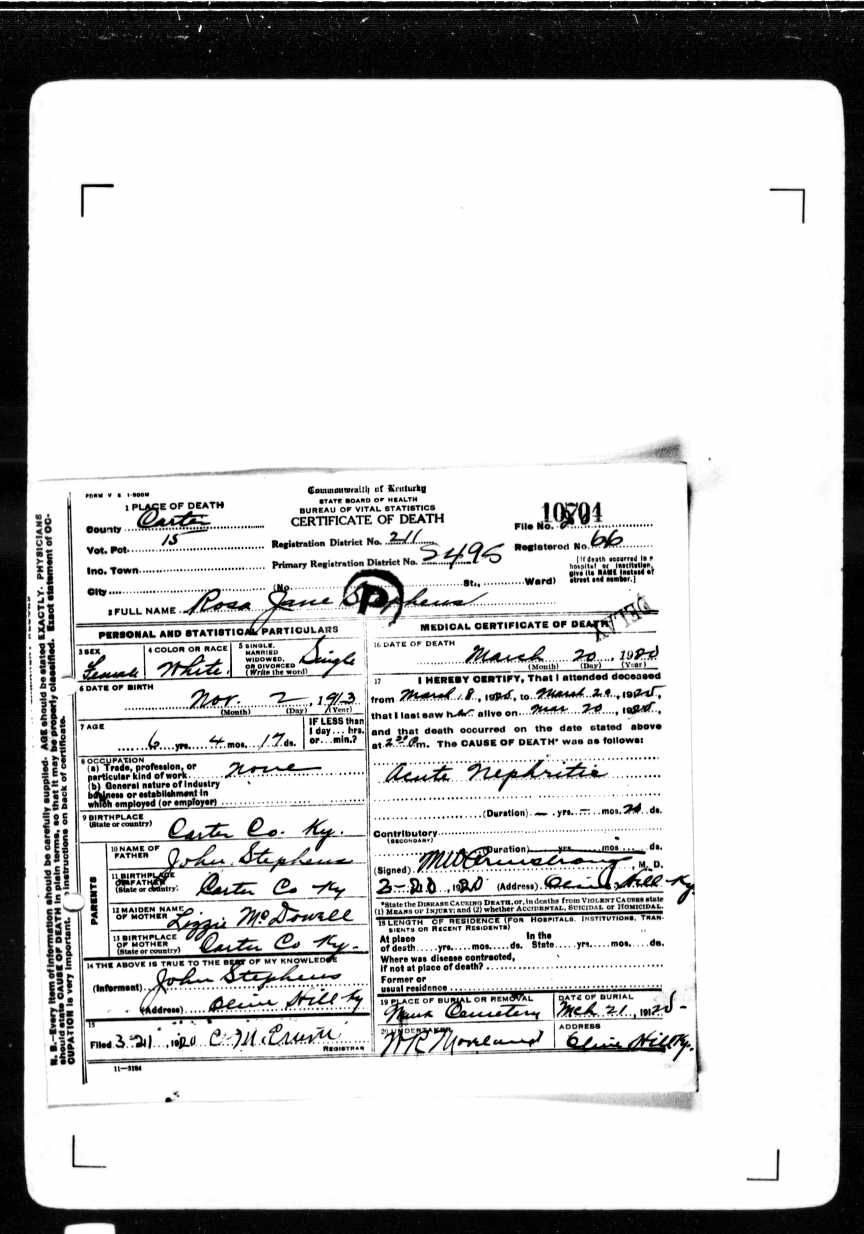 FORM V S 1-500M
Commonwealth of Kentucky
STATE BOARD OF HEALTH
BUREAU OF VITAL STATISTICS
CERTIFICATE OF DEATH
1 PLACE OF DEATH
County Carter
Vot. Pot. 15
Inc. Town
City
Registration District No. 211
Primary Registration District No. 5495
(No. St., Ward)
File No. 10704
Registered No. 66
[If death occurred in a
hospital or institution,
give its NAME instead of
street and number.]
2 FULL NAME Rosa Jane Stephens
P
DELAY
PERSONAL AND STATISTICAL PARTICULARS
3 SEX
Female
4 COLOR OR RACE
White
5 SINGLE,
MARRIED
WIDOWED,
OR DIVORCED
(Write the word)
Single
6 DATE OF BIRTH
Nov. 2, 1913
(Month) (Day) (Year)
7 AGE
6 yrs. 4 mos. 17 ds.
IF LESS than
1 day... hrs.
or... min.?
8 OCCUPATION
(a) Trade, profession, or
particular kind of work none
(b) General nature of industry
business or establishment in
which employed (or employer)
9 BIRTHPLACE
(State or country)
Carter Co. Ky.
PARENTS
10 NAME OF
FATHER
John Stephens
11 BIRTHPLACE
OF FATHER
(State or country)
Carter Co Ky
12 MAIDEN NAME
OF MOTHER
Lizzie McDowell
13 BIRTHPLACE
OF MOTHER
(State or country)
Carter Co Ky.
14 THE ABOVE IS TRUE TO THE BEST OF MY KNOWLEDGE
(Informant) John Stephens
(Address) Olive Hill Ky
15
Filed 3-21, 1920
REGISTRAR
11-3184
MEDICAL CERTIFICATE OF DEATH
16 DATE OF DEATH
March 20, 1920
(Month) (Day) (Year)
17 I HEREBY CERTIFY, That I attended deceased
from March 8, 1920, to March 20, 1920,
that I last saw her alive on Mar 20, 1920,
and that death occurred on the date stated above
at 2 30 P m. The CAUSE OF DEATH* was as follows:
Acute Nephritis
(Duration) yrs. mos. ds.
Contributory
(SECONDARY)
(Duration) yrs. mos. ds.
(Signed) M W Armstrong, M. D.
3-20, 1920 (Address) Olive Hill Ky
*State the DISEASE CAUSING DEATH, or, in deaths from VIOLENT CAUSES state
(1) MEANS OF INJURY; and (2) whether ACCIDENTAL, SUICIDAL or HOMICIDAL.
18 LENGTH OF RESIDENCE (FOR HOSPITALS, INSTITUTIONS, TRAN-
SIENTS OR RECENT RESIDENTS)
At place In the
of death yrs. mos. ds. State yrs. mos. ds.
Where was disease contracted,
if not at place of death?
Former or
usual residence
19 PLACE OF BURIAL OR REMOVAL
Cemetery
DATE OF BURIAL
Mch 21, 1920
20 UNDERTAKER
W R Moreland
ADDRESS
Olive Hill Ky.
N. B.—Every item of information should be carefully supplied. AGE should be stated EXACTLY. PHYSICIANS
should state CAUSE OF DEATH in plain terms, so that it may be properly classified. Exact statement of OC-
CUPATION is very important. instructions on back of certificate.